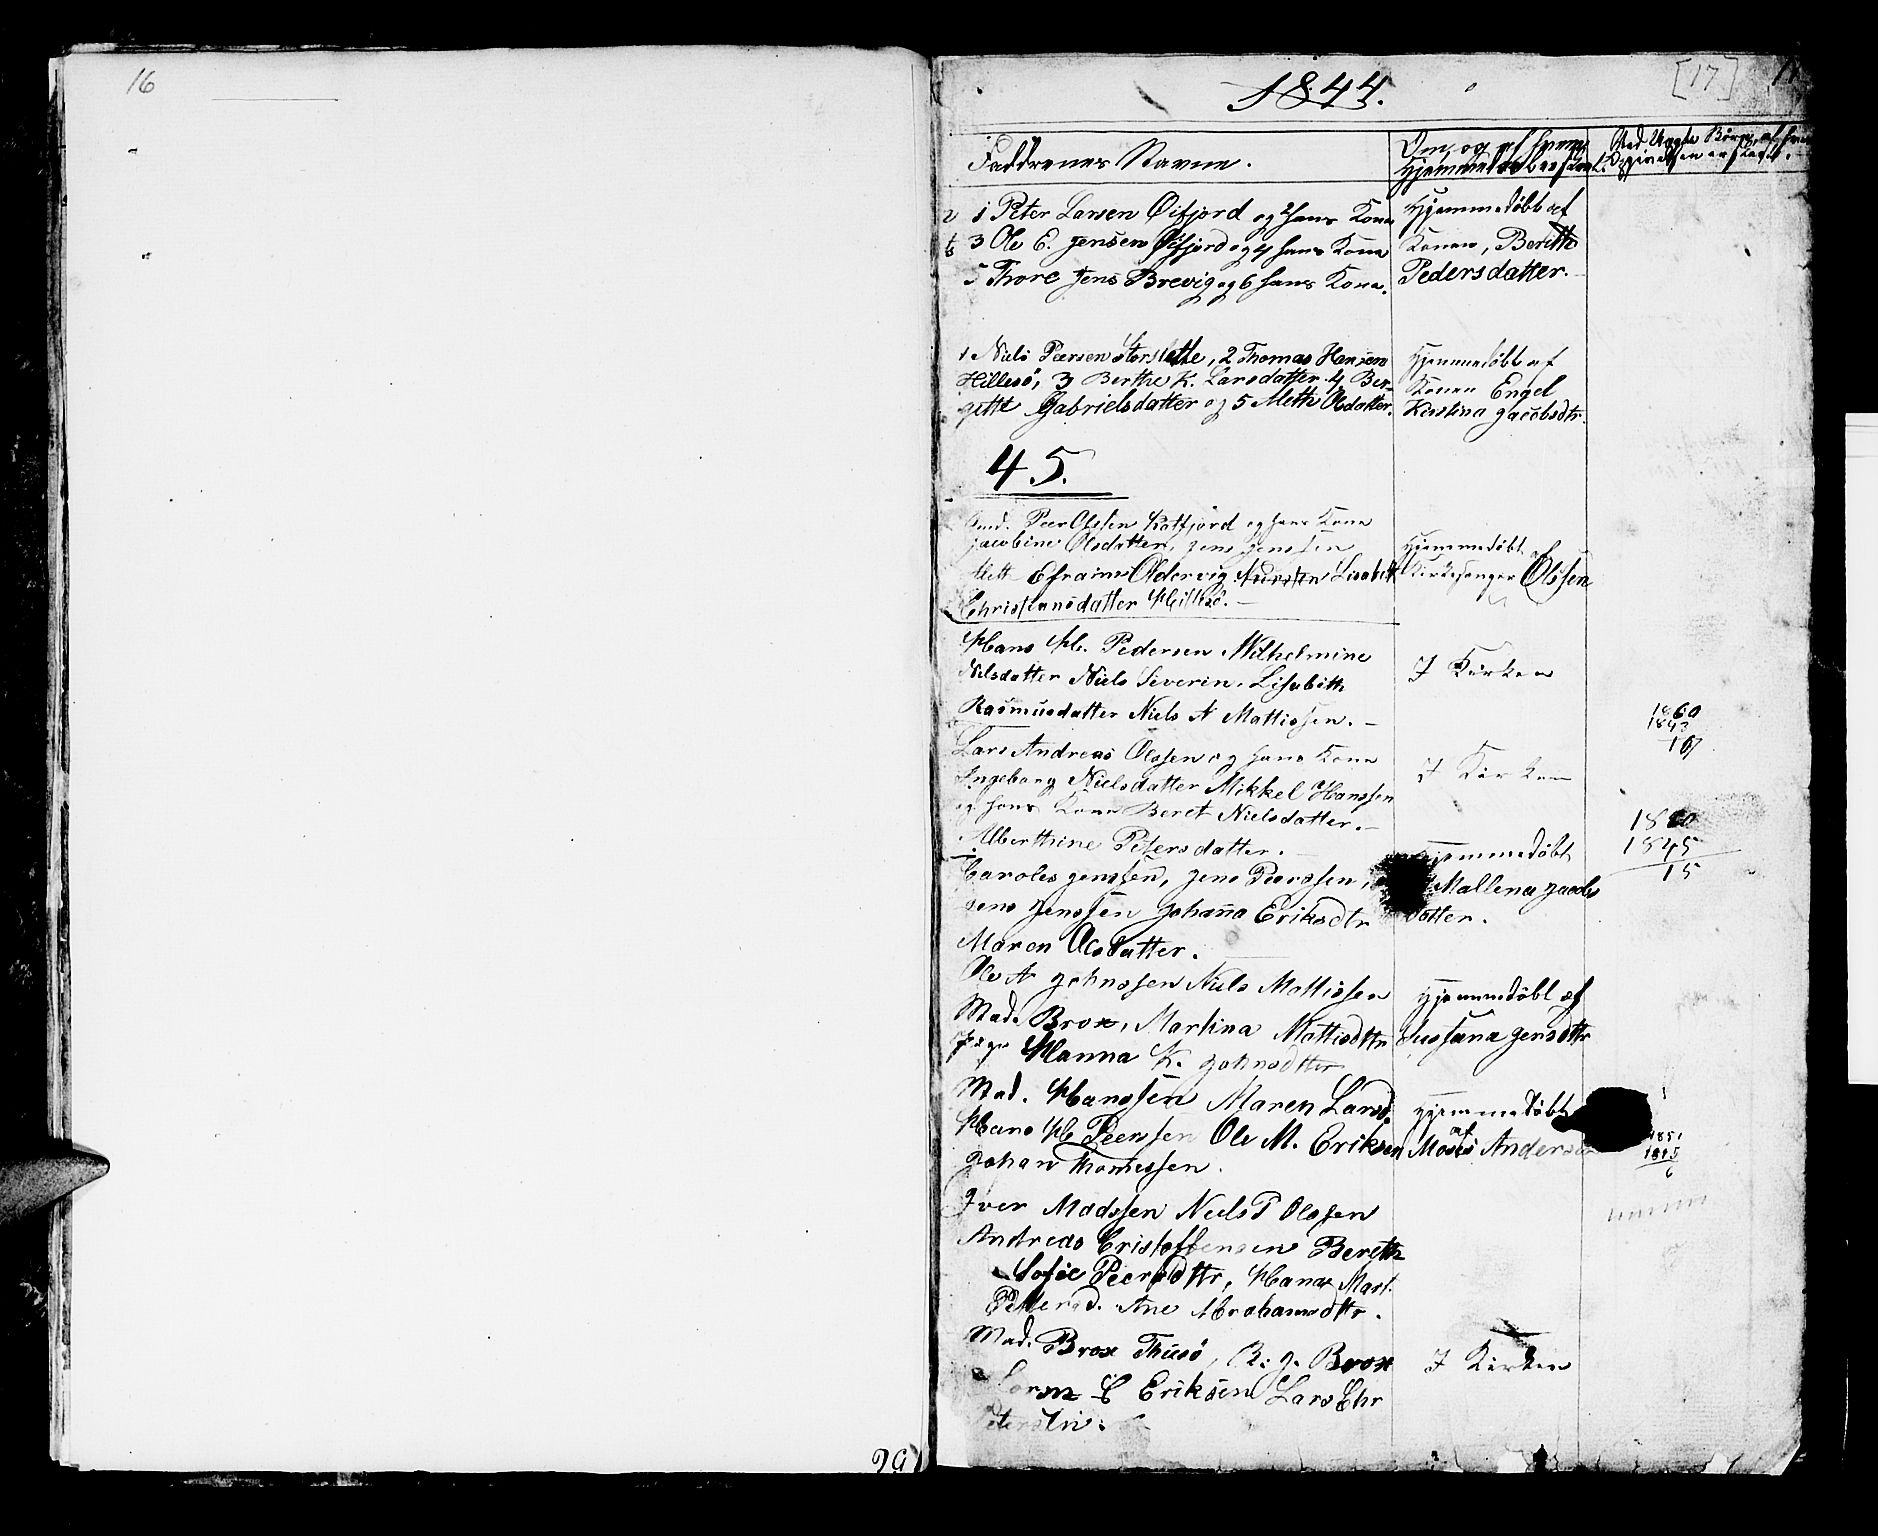 16
1844.
[17]
Faddernes Navne.
Om, og af hvem
Hjemmedøbt
1 Peter Larsen Öifjord og 2 hans Kone
3 Ole E. Jensen Öifjord og 4 hans Kone
5 Thore Jens Brevig og 6 hans Kone.
Hjemmedöbt af
Konen, Berith
Pedersdatter.
1 Niels Persen Storslette, 2 Thomas Hansen
Hillesö, 3 Berthe K. Larsdatter 4 Ber-
gette Gabrielsdatter og 5 Meth Olsdatter.
Hjemmedöbt af
Konen Engel
Kirstina Jacobsdtr.
45.
Peer Olssen Katfjord og hans Kone
Jacobine Olsdatter, Jens Jenssen
Efraims Oldervig Lisabeth
Christiansdatter Hillesö.
Hjemmedöbt af
Kirkesanger Olssen
Hans H. Pedersen Wilhelmine
Nilsdatter Niels Siverin, Lisabeth
Rasmusdatter Niels A Mattissen.
I Kirken
1860
1843
Lars Andreas Olssen og hans Kone
Ingeborg Nielsdatter Mikkel Hanssen
og hans Kone Beret Nielsdatter.
Alberthine Petersdatter.
I Kirken
1860
1845
15
Caroles Jenssen, Jens Peerssen,
Jens Jenssen Johanna Eriksdtr
Maren Olsdatter.
Hjemmedöbt
Mallena Jacobs
datter.
Ole A Johnssen Niels Mattissen
Mad. Brox, Martina Mattisdtr
Hanna K. Johnsdtter
Hjemmedöbt af
Sussana Jensdttr
Mad. Hanssen Maren Larsd.
Hans H Peerssen Ole M. Eriksen
Johan Thomessen.
Hjemmedöbt
af
Moses Andersen
1851
1845
6
Iver Madssen Niels P Olssen
Andreas Cristoffensen Bereth
Sofie Peersdttr, Hana Mart.
Pettersd. Ane Abrahamsdttr.
Mad. Brox Thusö, R. J. Brox
Soren C Eriksen Lars Chr
Peterssen.
I Kirken
29